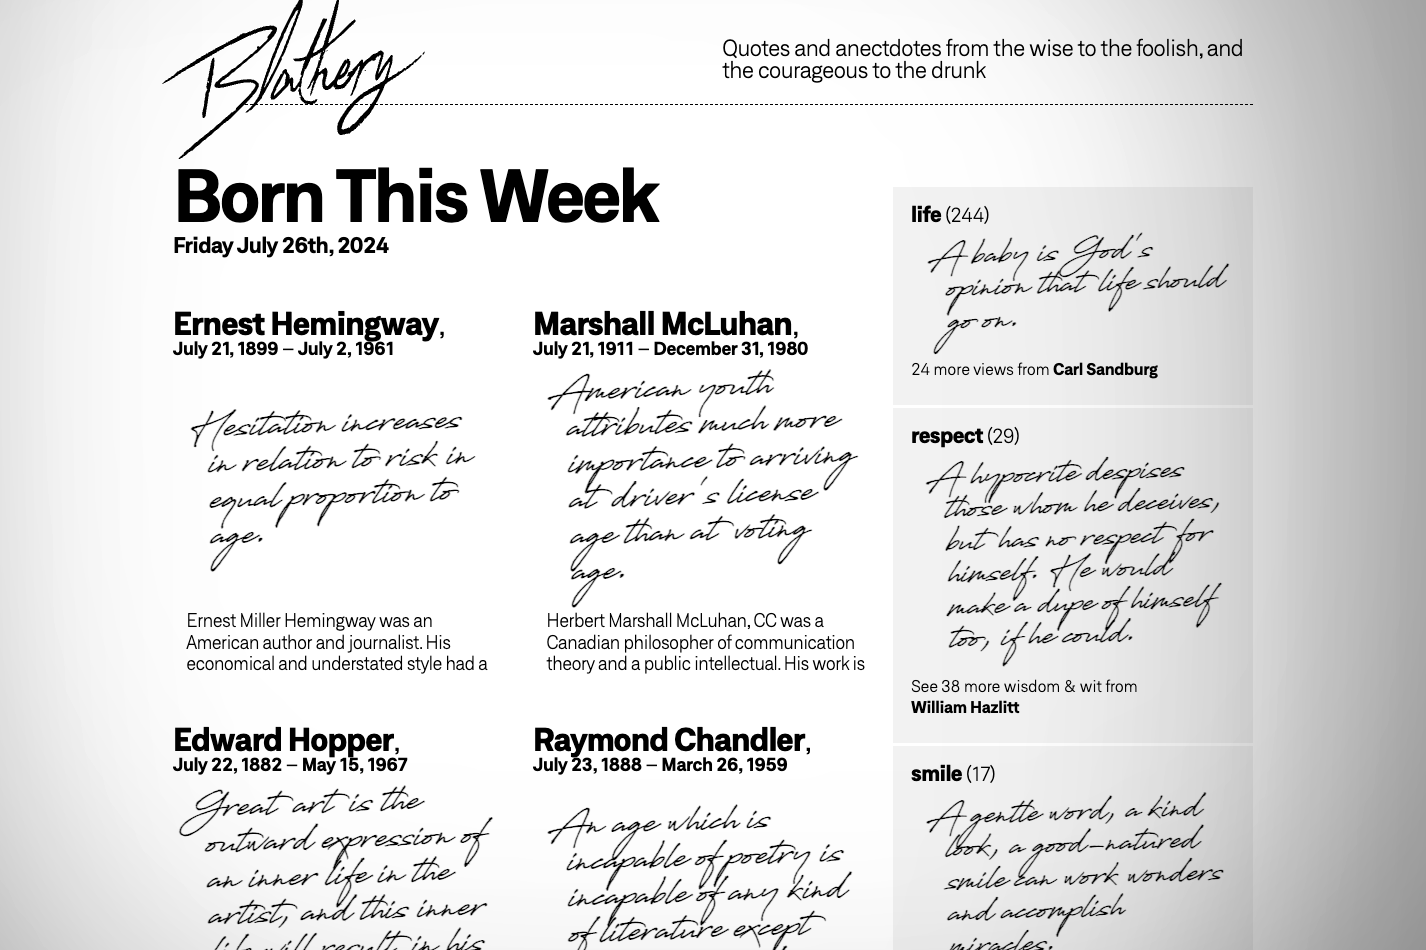 Blathery
Quotes and anectdotes from the wise to the foolish, and
the courageous to the drunk
Born This Week
Friday July 26th, 2024
Ernest Hemingway,
July 21, 1899 – July 2, 1961
Hesitation increases
in relation to risk in
equal proportion to
age.
Ernest Miller Hemingway was an
American author and journalist. His
economical and understated style had a
Marshall McLuhan,
July 21, 1911 – December 31, 1980
American youth
attributes much more
importance to arriving
at driver's license
age than at voting
age.
Herbert Marshall McLuhan, CC was a
Canadian philosopher of communication
theory and a public intellectual. His work is
Edward Hopper,
July 22, 1882 – May 15, 1967
Great art is the
outward expression of
an inner life in the
artist, and this inner
life will result in his
Raymond Chandler,
July 23, 1888 – March 26, 1959
An age which is
incapable of poetry is
incapable of any kind
of literature except
life (244)
A baby is God's
opinion that life should
go on.
24 more views from Carl Sandburg
respect (29)
A hypocrite despises
those whom he deceives,
but has no respect for
himself. He would
make a dupe of himself
too, if he could.
See 38 more wisdom & wit from
William Hazlitt
smile (17)
A gentle word, a kind
look, a good-natured
smile can work wonders
and accomplish
miracles.